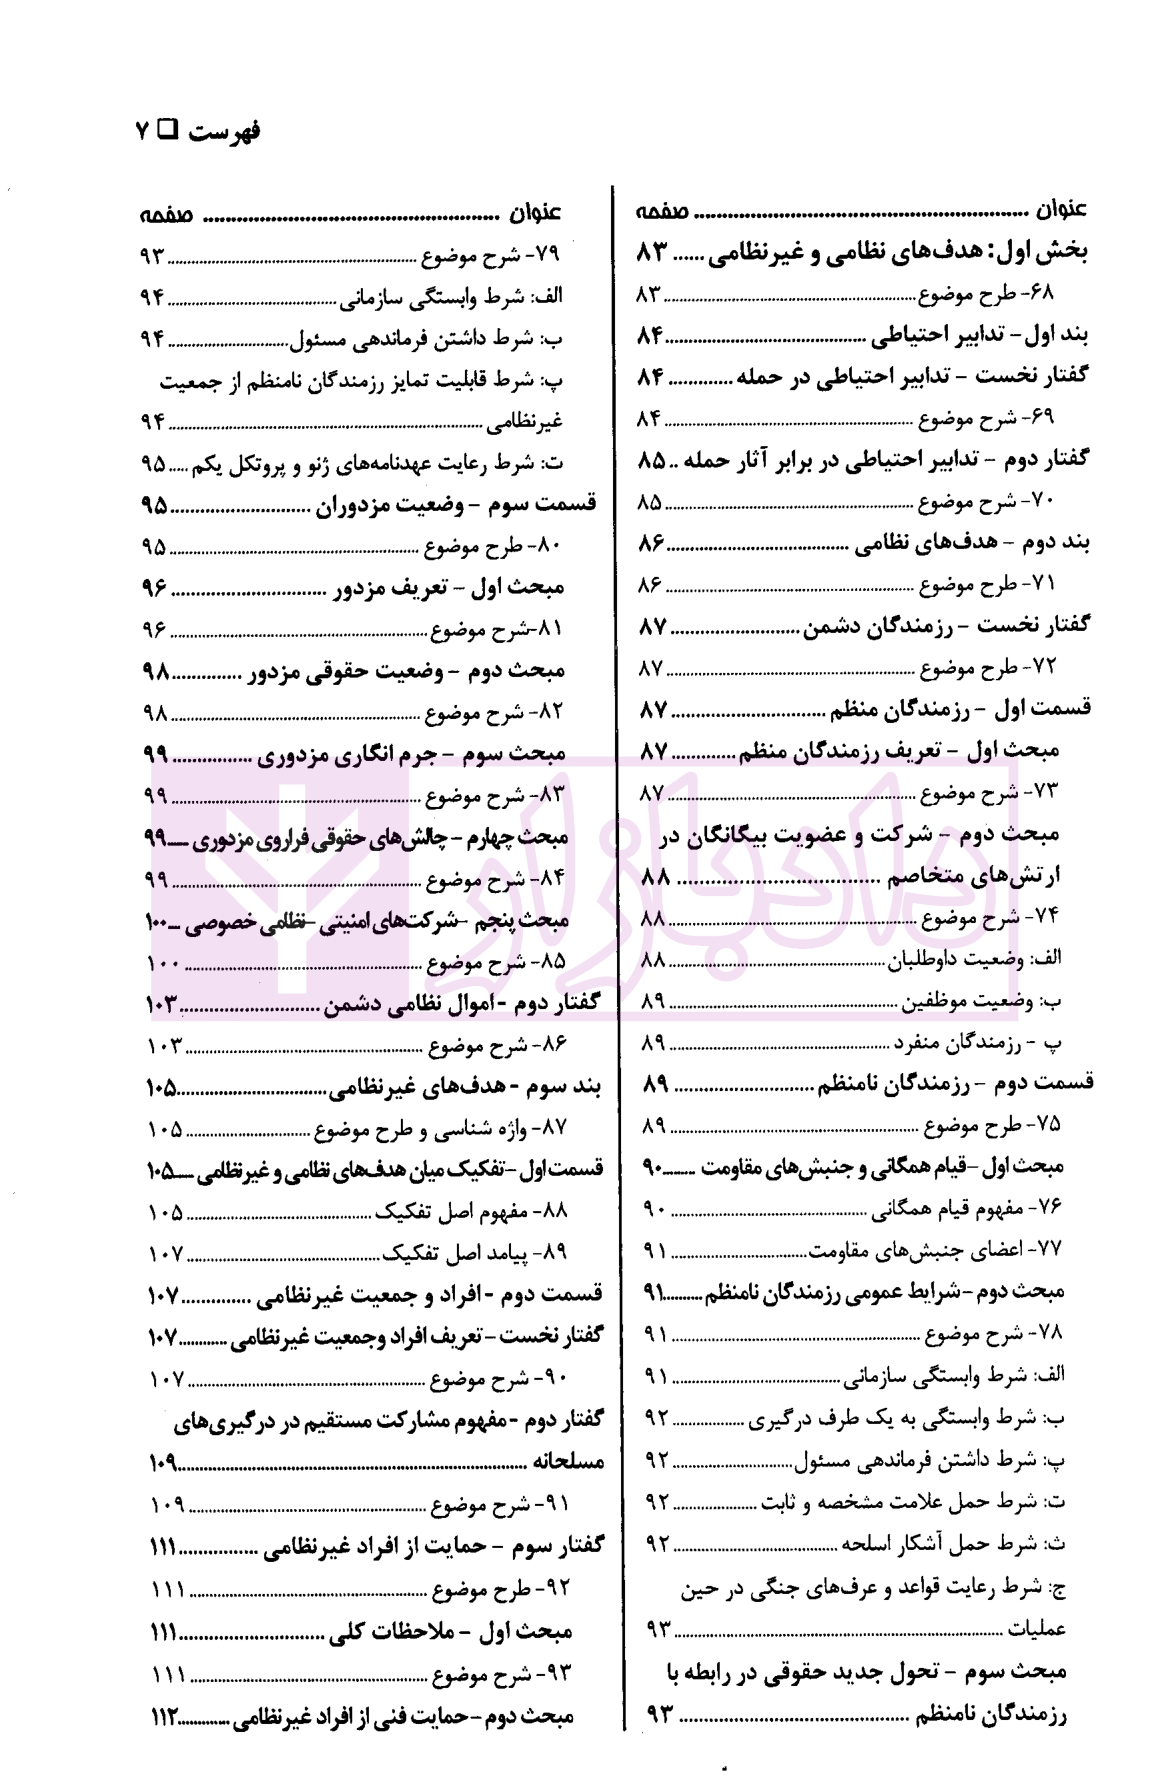 فهرست ❑ ۷
عنوان ........ صفحه
بخش اول: هدف‌های نظامی و غیرنظامی ...... ۸۳
۶۸- طرح موضوع ........ ۸۳
بند اول - تدابیر احتیاطی ........ ۸۴
گفتار نخست - تدابیر احتیاطی در حمله ........ ۸۴
۶۹- شرح موضوع ........ ۸۴
گفتار دوم - تدابیر احتیاطی در برابر آثار حمله .. ۸۵
۷۰- شرح موضوع ........ ۸۵
بند دوم - هدف‌های نظامی ........ ۸۶
۷۱- طرح موضوع ........ ۸۶
گفتار نخست - رزمندگان دشمن ........ ۸۷
۷۲- طرح موضوع ........ ۸۷
قسمت اول - رزمندگان منظم ........ ۸۷
مبحث اول - تعریف رزمندگان منظم ........ ۸۷
۷۳- شرح موضوع ........ ۸۷
مبحث دوم - شرکت و عضویت بیگانگان در
ارتش‌های متخاصم ........ ۸۸
۷۴- شرح موضوع ........ ۸۸
الف: وضعیت داوطلبان ........ ۸۸
ب: وضعیت موظفین ........ ۸۹
پ - رزمندگان منفرد ........ ۸۹
قسمت دوم - رزمندگان نامنظم ........ ۸۹
۷۵- طرح موضوع ........ ۸۹
مبحث اول - قیام همگانی و جنبش‌های مقاومت ........ ۹۰
۷۶- مفهوم قیام همگانی ........ ۹۰
۷۷- اعضای جنبش‌های مقاومت ........ ۹۱
مبحث دوم - شرایط عمومی رزمندگان نامنظم ........ ۹۱
۷۸- شرح موضوع ........ ۹۱
الف: شرط وابستگی سازمانی ........ ۹۱
ب: شرط وابستگی به یک طرف درگیری ........ ۹۲
پ: شرط داشتن فرماندهی مسئول ........ ۹۲
ت: شرط حمل علامت مشخصه و ثابت ........ ۹۲
ث: شرط حمل آشکار اسلحه ........ ۹۲
ج: شرط رعایت قواعد و عرف‌های جنگی در حین
عملیات ........ ۹۳
مبحث سوم - تحول جدید حقوقی در رابطه با
رزمندگان نامنظم ........ ۹۳
عنوان ........ صفحه
۷۹- شرح موضوع ........ ۹۳
الف: شرط وابستگی سازمانی ........ ۹۴
ب: شرط داشتن فرماندهی مسئول ........ ۹۴
پ: شرط قابلیت تمایز رزمندگان نامنظم از جمعیت
غیرنظامی ........ ۹۴
ت: شرط رعایت عهدنامه‌های ژنو و پروتکل یکم ..... ۹۵
قسمت سوم - وضعیت مزدوران ........ ۹۵
۸۰- طرح موضوع ........ ۹۵
مبحث اول - تعریف مزدور ........ ۹۶
۸۱-شرح موضوع ........ ۹۶
مبحث دوم - وضعیت حقوقی مزدور ........ ۹۸
۸۲- شرح موضوع ........ ۹۸
مبحث سوم - جرم انگاری مزدوری ........ ۹۹
۸۳- شرح موضوع ........ ۹۹
مبحث چهارم - چالش‌های حقوقی فراروی مزدوری ..... ۹۹
۸۴- شرح موضوع ........ ۹۹
مبحث پنجم - شرکت‌های امنیتی - نظامی خصوصی ... ۱۰۰
۸۵- شرح موضوع ........ ۱۰۰
گفتار دوم - اموال نظامی دشمن ........ ۱۰۳
۸۶- شرح موضوع ........ ۱۰۳
بند سوم - هدف‌های غیرنظامی ........ ۱۰۵
۸۷- واژه شناسی و طرح موضوع ........ ۱۰۵
قسمت اول - تفکیک میان هدف‌های نظامی و غیرنظامی .... ۱۰۵
۸۸- مفهوم اصل تفکیک ........ ۱۰۵
۸۹- پیامد اصل تفکیک ........ ۱۰۷
قسمت دوم - افراد و جمعیت غیرنظامی ........ ۱۰۷
گفتار نخست - تعریف افراد وجمعیت غیرنظامی ........ ۱۰۷
۹۰- شرح موضوع ........ ۱۰۷
گفتار دوم - مفهوم مشارکت مستقیم در درگیری‌های
مسلحانه ........ ۱۰۹
۹۱- شرح موضوع ........ ۱۰۹
گفتار سوم - حمایت از افراد غیرنظامی ........ ۱۱۱
۹۲- طرح موضوع ........ ۱۱۱
مبحث اول - ملاحظات کلی ........ ۱۱۱
۹۳- شرح موضوع ........ ۱۱۱
مبحث دوم - حمایت فنی از افراد غیرنظامی ........ ۱۱۲
دادبازار